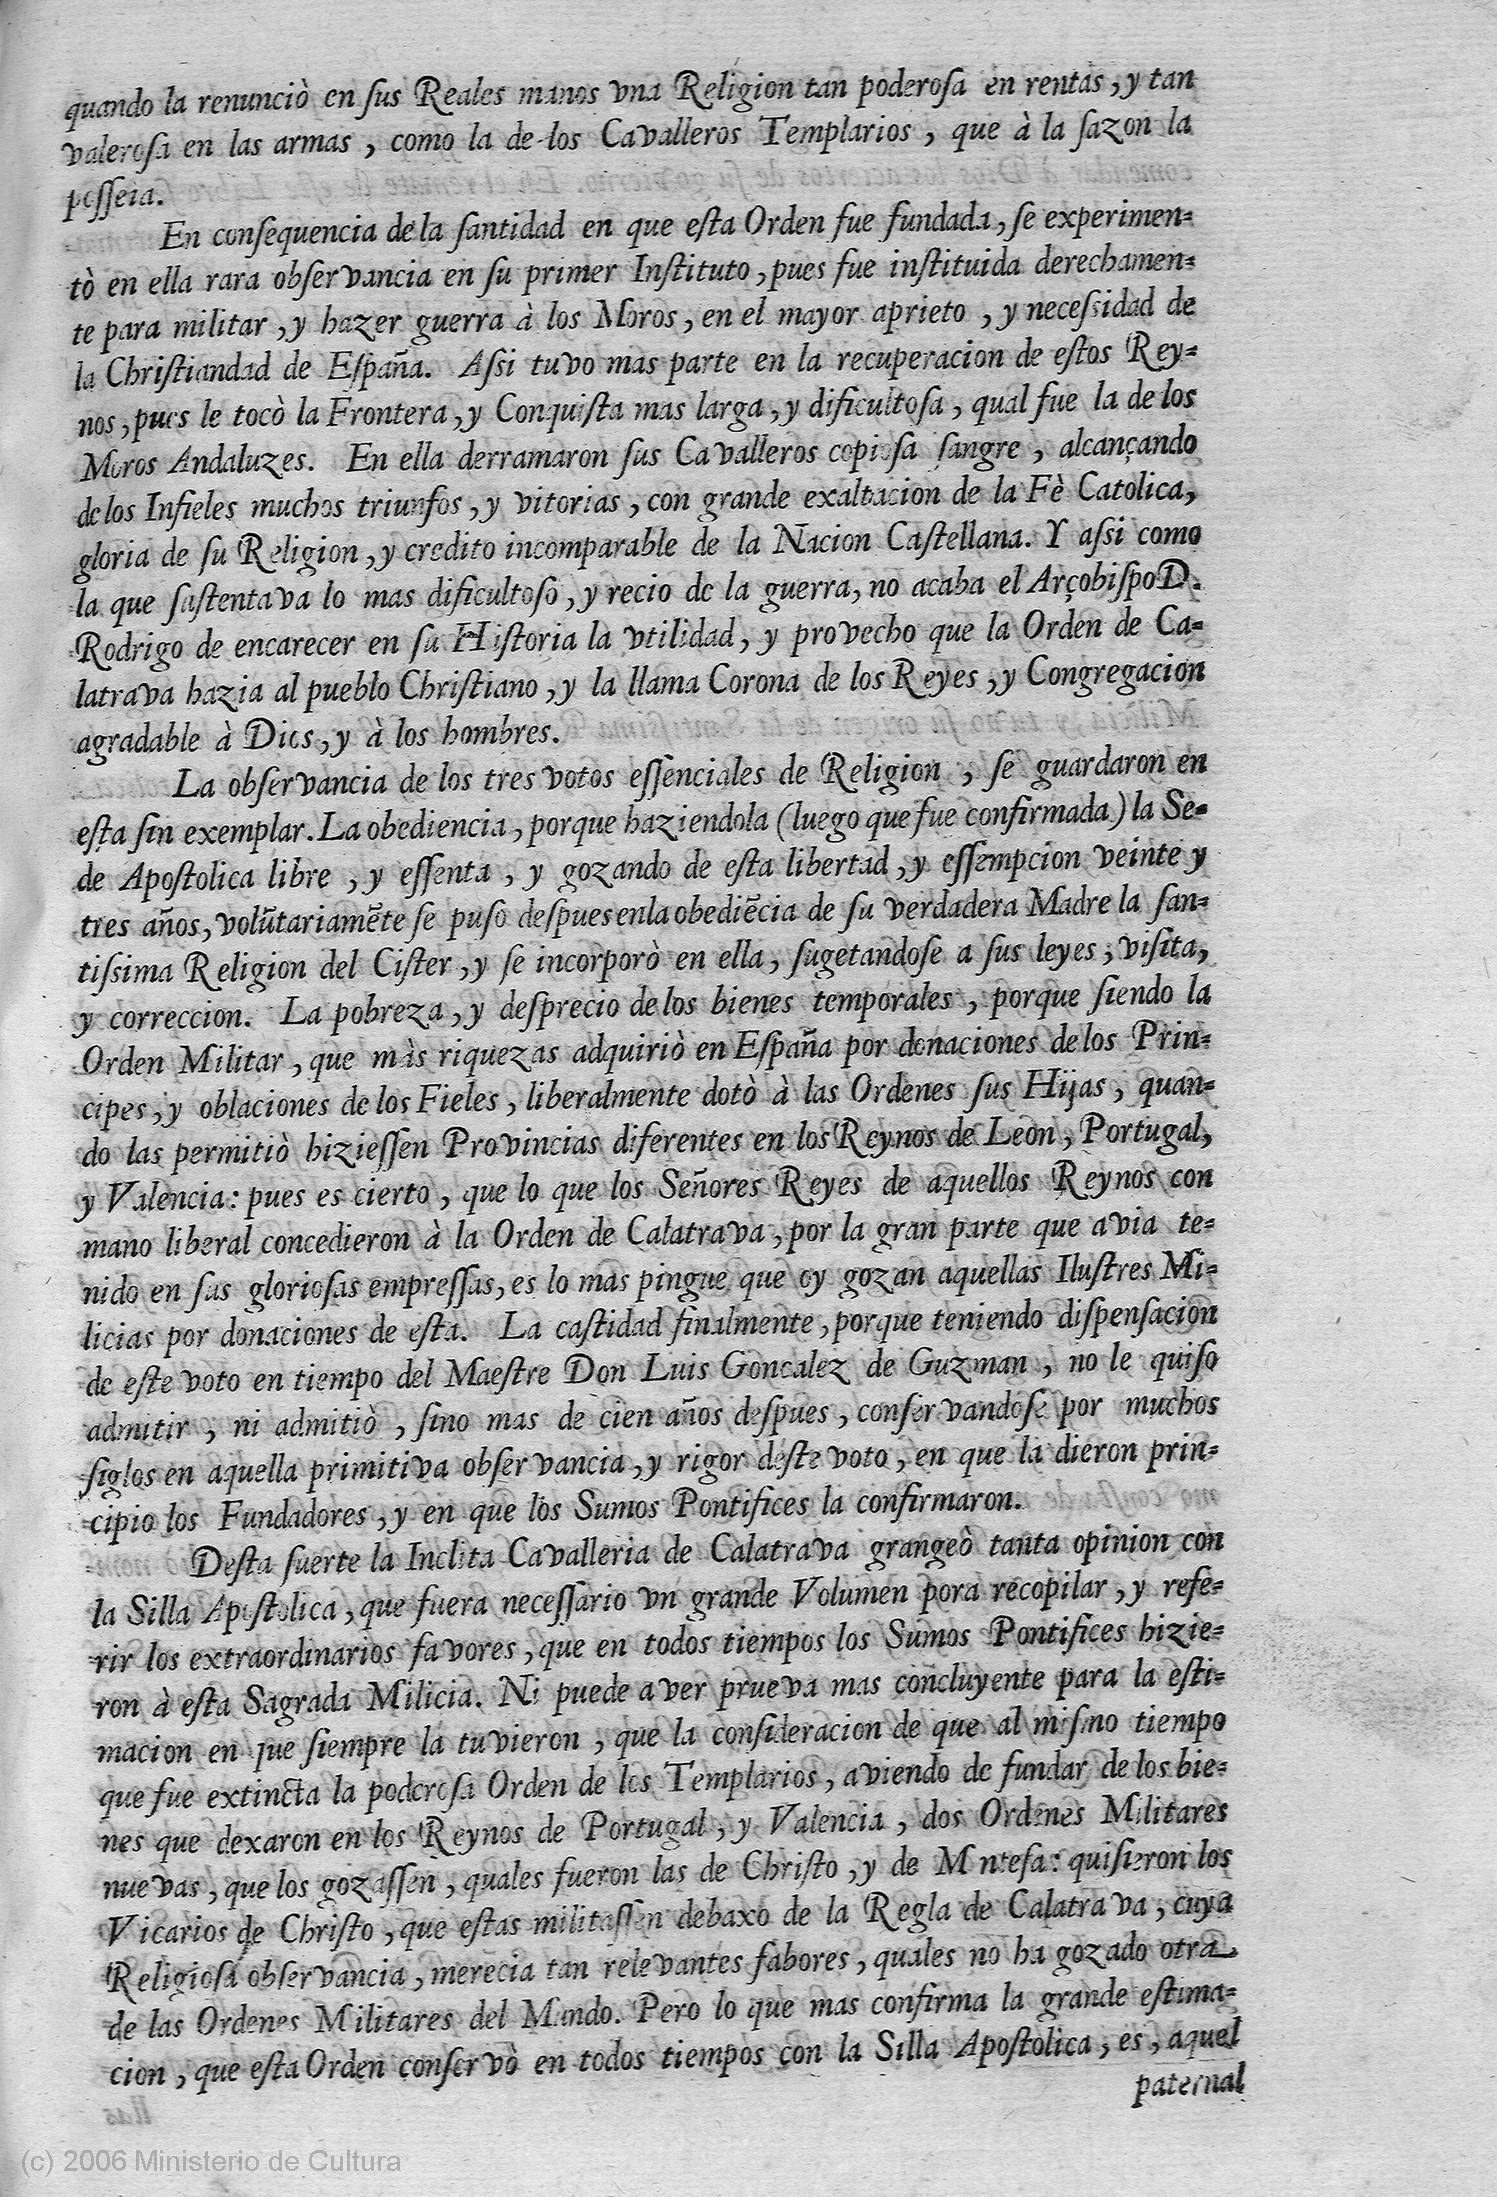 quando la renunciò en ſus Reales manos vna Religion tan poderoſa en rentas, y tan
valeroſa en las armas, como la de los Cavalleros Templarios, que à la ſazon la
poſſeia.
En conſequencia de la ſantidad en que eſta Orden fue fundada, ſe experimen=
tò en ella rara obſervancia en ſu primer Inſtituto, pues fue inſtituida derechamen=
te para militar, y hazer guerra à los Moros, en el mayor aprieto, y neceſsidad de
la Chriſtiandad de Eſpaña. Aſsi tuvo mas parte en la recuperacion de eſtos Rey=
nos, pues le tocò la Frontera, y Conquiſta mas larga, y dificultoſa, qual fue la de los
Moros Andaluzes. En ella derramaron ſus Cavalleros copioſa ſangre, alcançando
de los Infieles muchos triunfos, y vitorias, con grande exaltacion de la Fè Catolica,
gloria de ſu Religion, y credito incomparable de la Nacion Caſtellana. Y aſsi como
la que ſuſtentava lo mas dificultoſo, y recio de la guerra, no acaba el Arçobiſpo D.
Rodrigo de encarecer en ſu Hiſtoria la vtilidad, y provecho que la Orden de Ca=
latrava hazia al pueblo Chriſtiano, y la llama Corona de los Reyes, y Congregacion
agradable à Dios, y à los hombres.
La obſervancia de los tres votos eſſenciales de Religion, ſe guardaron en
eſta ſin exemplar. La obediencia, porque haziendola (luego que fue confirmada) la Se=
de Apoſtolica libre, y eſſenta, y gozando de eſta libertad, y eſſempcion veinte y
tres años, volũtariamẽte ſe puſo deſpues en la obediẽcia de ſu verdadera Madre la ſan=
tiſsima Religion del Ciſter, y ſe incorporò en ella, ſugetandoſe a ſus leyes, viſita,
y correccion. La pobreza, y deſprecio de los bienes temporales, porque ſiendo la
Orden Militar, que màs riquezas adquiriò en Eſpaña por donaciones de los Prin=
cipes, y oblaciones de los Fieles, liberalmente dotò à las Ordenes ſus Hijas, quan=
do las permitiò hizieſſen Provincias diferentes en los Reynos de Leòn, Portugal,
y Valencia: pues es cierto, que lo que los Señores Reyes de aquellos Reynos con
mano liberal concedieron à la Orden de Calatrava, por la gran parte que avia te=
nido en ſus glorioſas empreſſas, es lo mas pingue que oy gozan aquellas Iluſtres Mi=
licias por donaciones de eſta. La caſtidad finalmente, porque teniendo diſpenſacion
de eſte voto en tiempo del Maeſtre Don Luis Goncalez de Guzman, no le quiſo
admitir, ni admitiò, ſino mas de cien años deſpues, conſervandoſe por muchos
ſiglos en aquella primitiva obſervancia, y rigor deſte voto, en que la dieron prin=
cipio los Fundadores, y en que los Sumos Pontifices la confirmaron.
Deſta ſuerte la Inclita Cavalleria de Calatrava grangeò tanta opinion con
la Silla Apoſtolica, que fuera neceſſario vn grande Volumen pora recopilar, y refe=
rir los extraordinarios favores, que en todos tiempos los Sumos Pontifices hizie=
ron à eſta Sagrada Milicia. Ni puede aver prueva mas concluyente para la eſti=
macion en que ſiempre la tuvieron, que la conſideracion de que al miſmo tiempo
que fue extincta la poderoſa Orden de los Templarios, aviendo de fundar de los bie=
nes que dexaron en los Reynos de Portugal, y Valencia, dos Ordenes Militares
nuevas, que los gozaſſen, quales fueron las de Chriſto, y de M nteſa: quiſieron los
Vicarios de Chriſto, que eſtas militaſſen debaxo de la Regla de Calatrava, cuya
Religioſa obſervancia, merecia tan relevantes fabores, quales no ha gozado otra
de las Ordenes Militares del Mundo. Pero lo que mas confirma la grande eſtima=
cion, que eſta Orden conſervò en todos tiempos con la Silla Apoſtolica, es, aquel
paternal
(c) 2006 Ministerio de Cultura